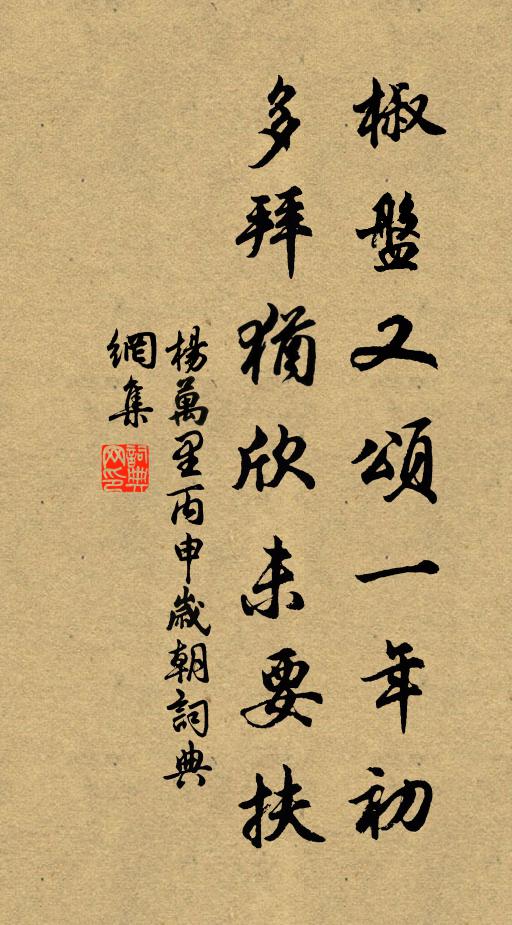 椒盤又頌一年初
多拜猶欣未要扶
楊萬里丙申歲朝詞典
網集
詞典
网印